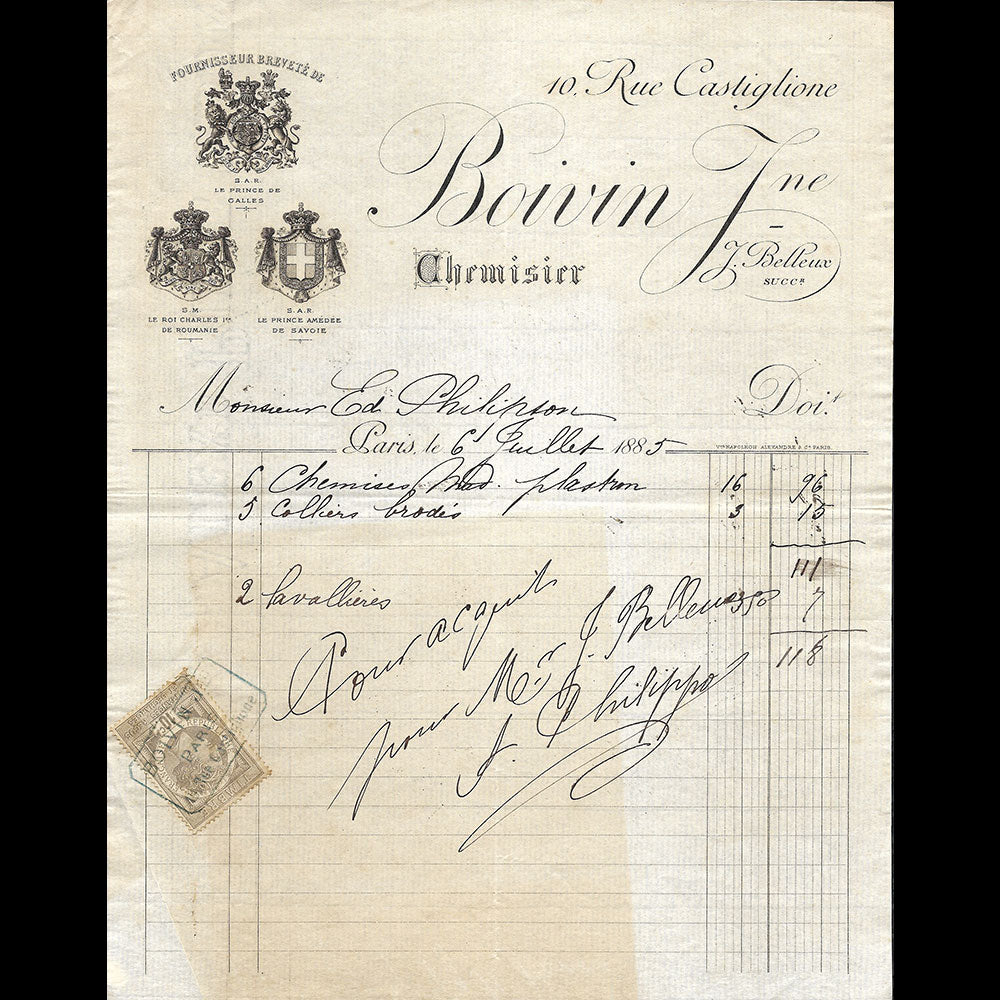 FOURNISSEUR BREVETÉ DE
S.A.R.
LE PRINCE DE
GALLES
S.M.
LE ROI CHARLES 1er
DE ROUMANIE
S.A.R.
LE PRINCE AMEDÉE
DE SAVOIE
10, Rue Castiglione
Boivin Jne
Chemisier
J. Belleux
SUCCR
Monsieur Ed Philipson Doit
Paris, le 6 Juillet 1885
Vve NAPOLEON ALEXANDRE & Cie PARIS.
6 Chemises Mad. plastron 16 96
5 Colliers brodés 3 15
111
2 lavallières 3 50 7
118
Pour acquit
pour Mr J. Belleux
Philippo
BOIVIN
PAR